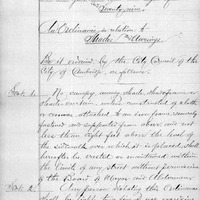 Twenty nine.
An Ordinance in relation to
Shades and Awnings
Be it ordained by the City Council of the
City of Cambridge, as follows:
Sect. 1. No canopy awning, shade, shade frame or
shade curtain, unless constructed of cloth
or canvas, attached to an iron frame, securely
fastened and supported from above, and not
less than eight feet above the level of
the sidewalk over which it is placed, shall
hereafter be erected or maintained within
the limits of any street without permission
of the Board of Mayor and Aldermen.
Sect. 2. Any person violating this Ordinance
shall be liable to a fine of not exceeding